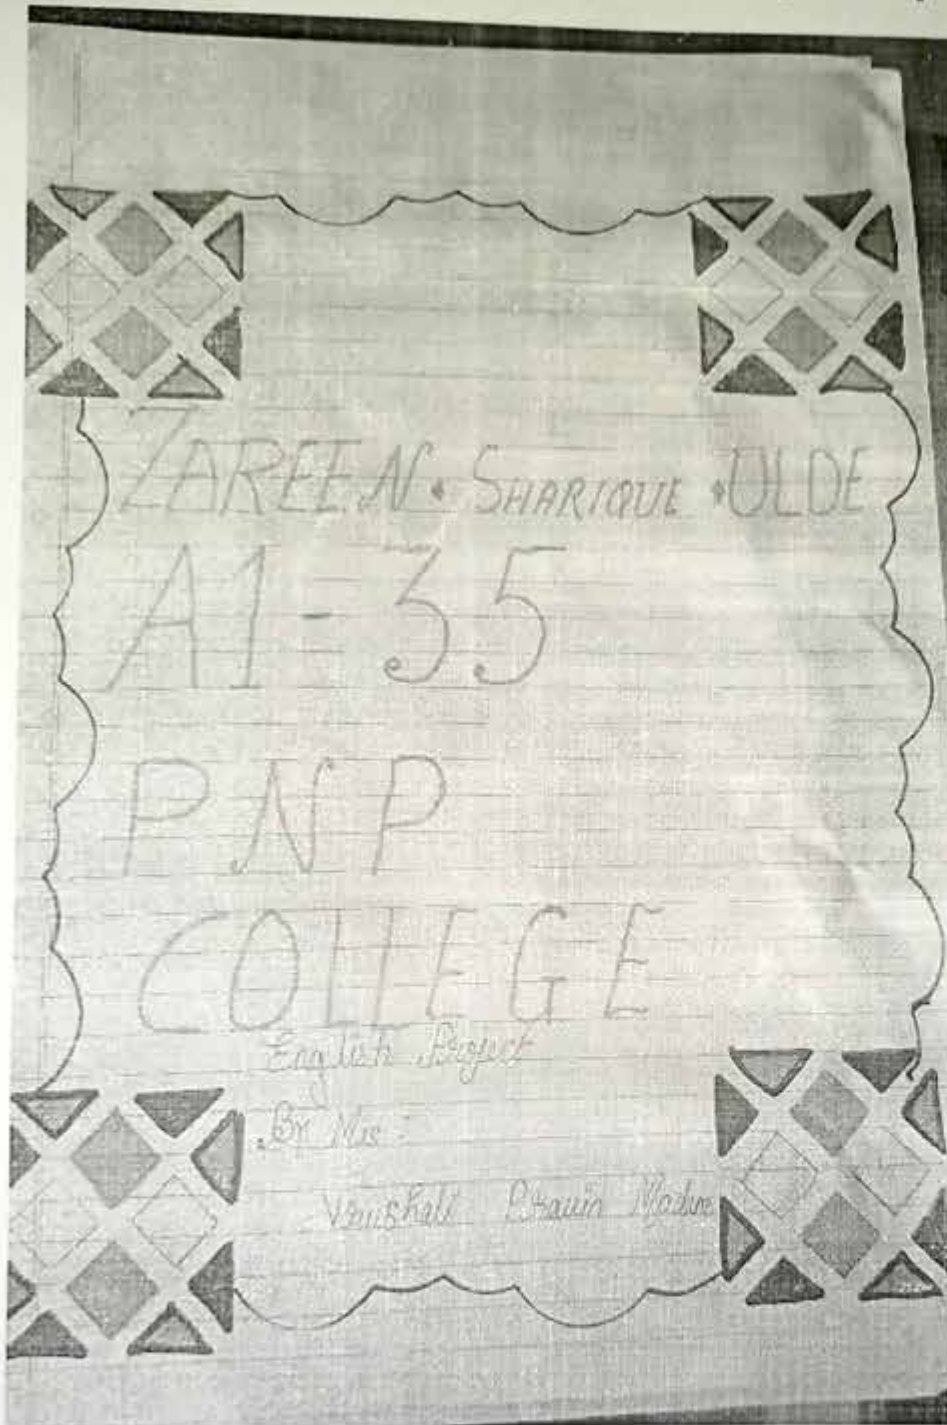 ZAREEN • SHARIQUE • ULDE
A1 - 35
P N P
COLLEGE
English Project
By Mis :
Vrushali Pravin